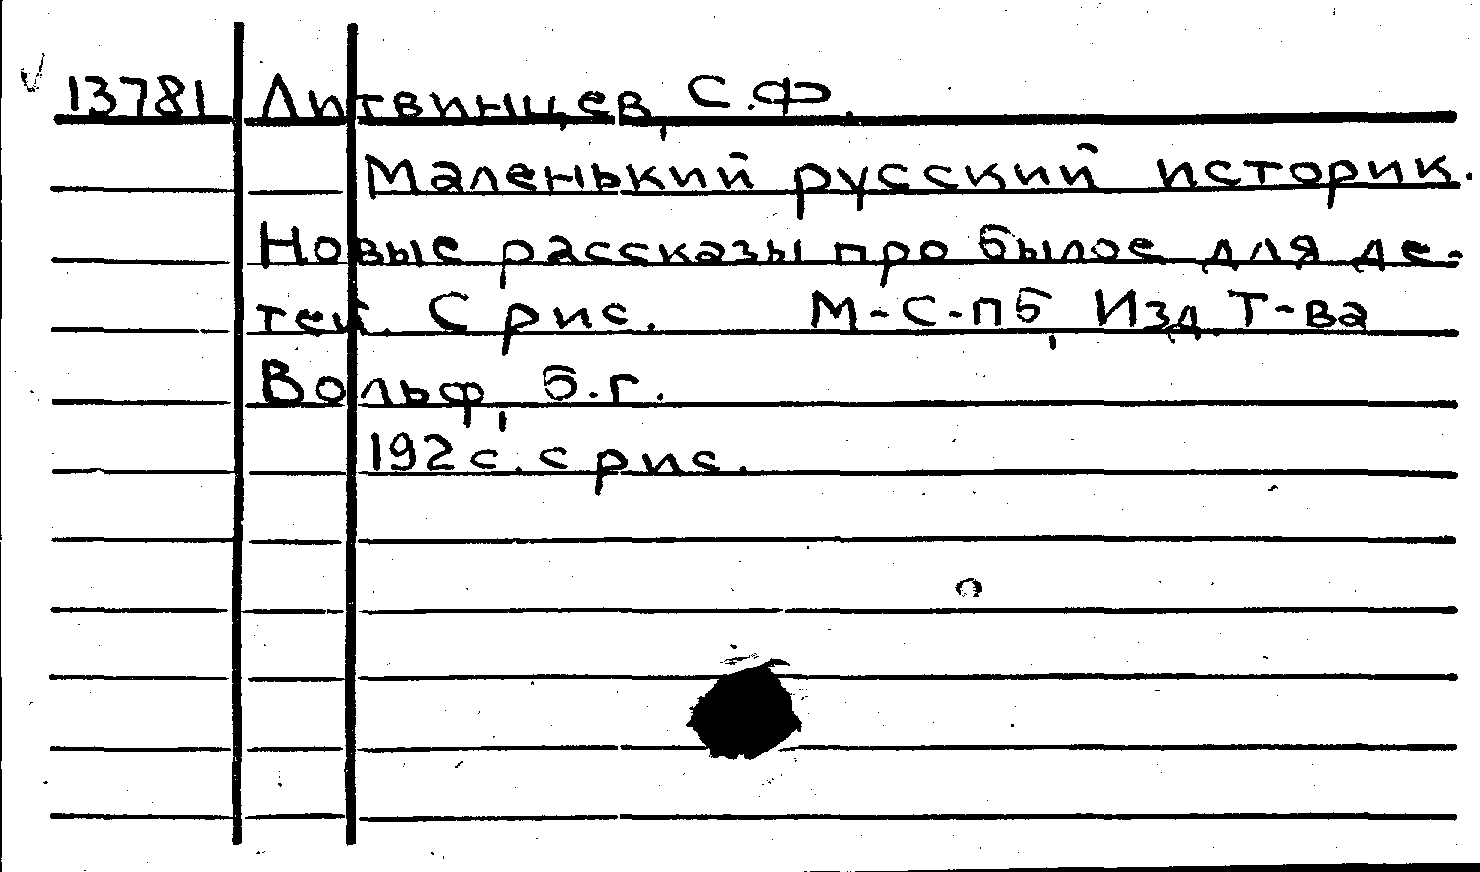 13781 Литвинцев, С.Ф.
Маленький русский историк.
Новые рассказы про былое для де-
тей. С рис. М-С-пб, Изд. Т-ва
Вольф, б.г.
192 с. с рис.